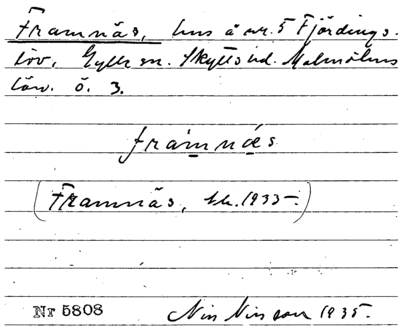 Framnäs, hus å nr. 5 Fjärdings-
löv, Gylle sn. Skytts hd. Malmöhus
län. ö. 3.
frámnäs
(Framnäs, sk. 1935.)
Nr 5808
Nils Nilsson 1935.